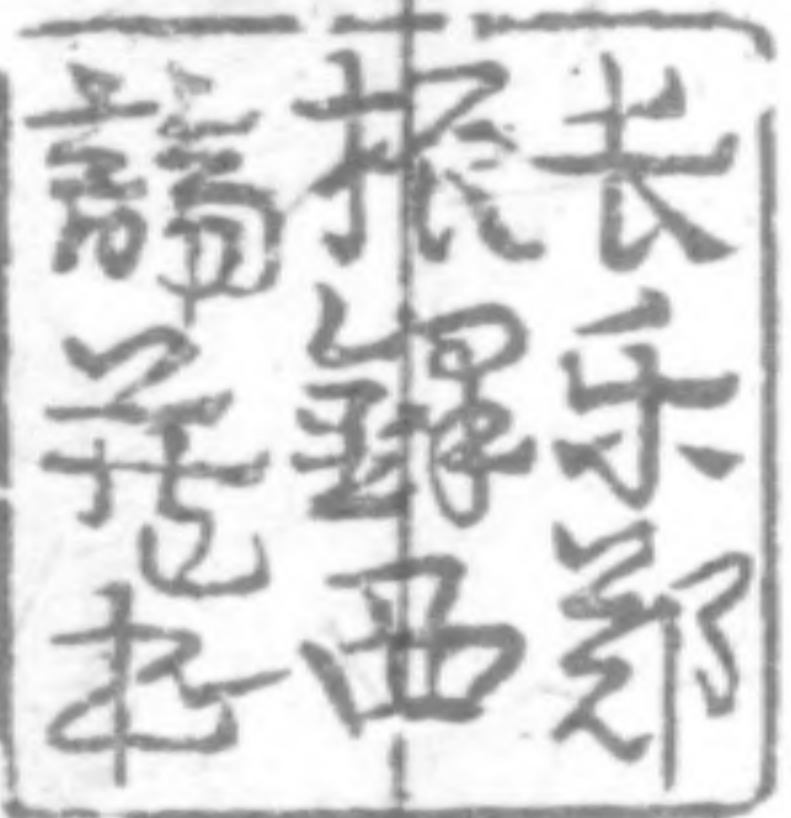 长乐郑
振鐸西
諦藏书